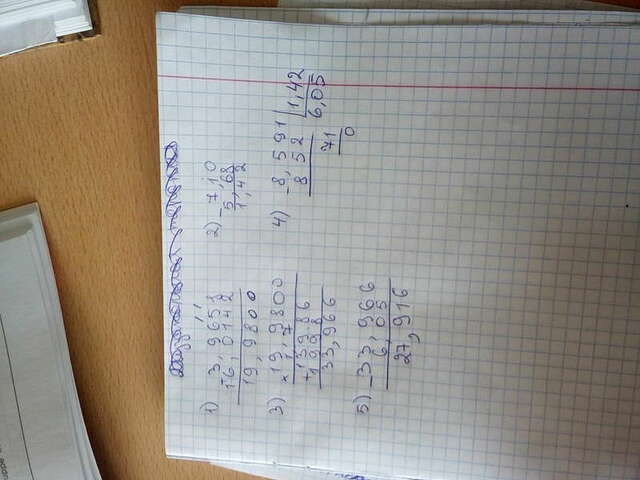 1) 3,9658
+16,0142
19,9800
2) -7,10
5,68
1,42
3) ×19,9800
1,7
+13986
1998
33,966
4) -8,591 1,42
852 6,05
71
0
5) -33,966
6,05
27,916